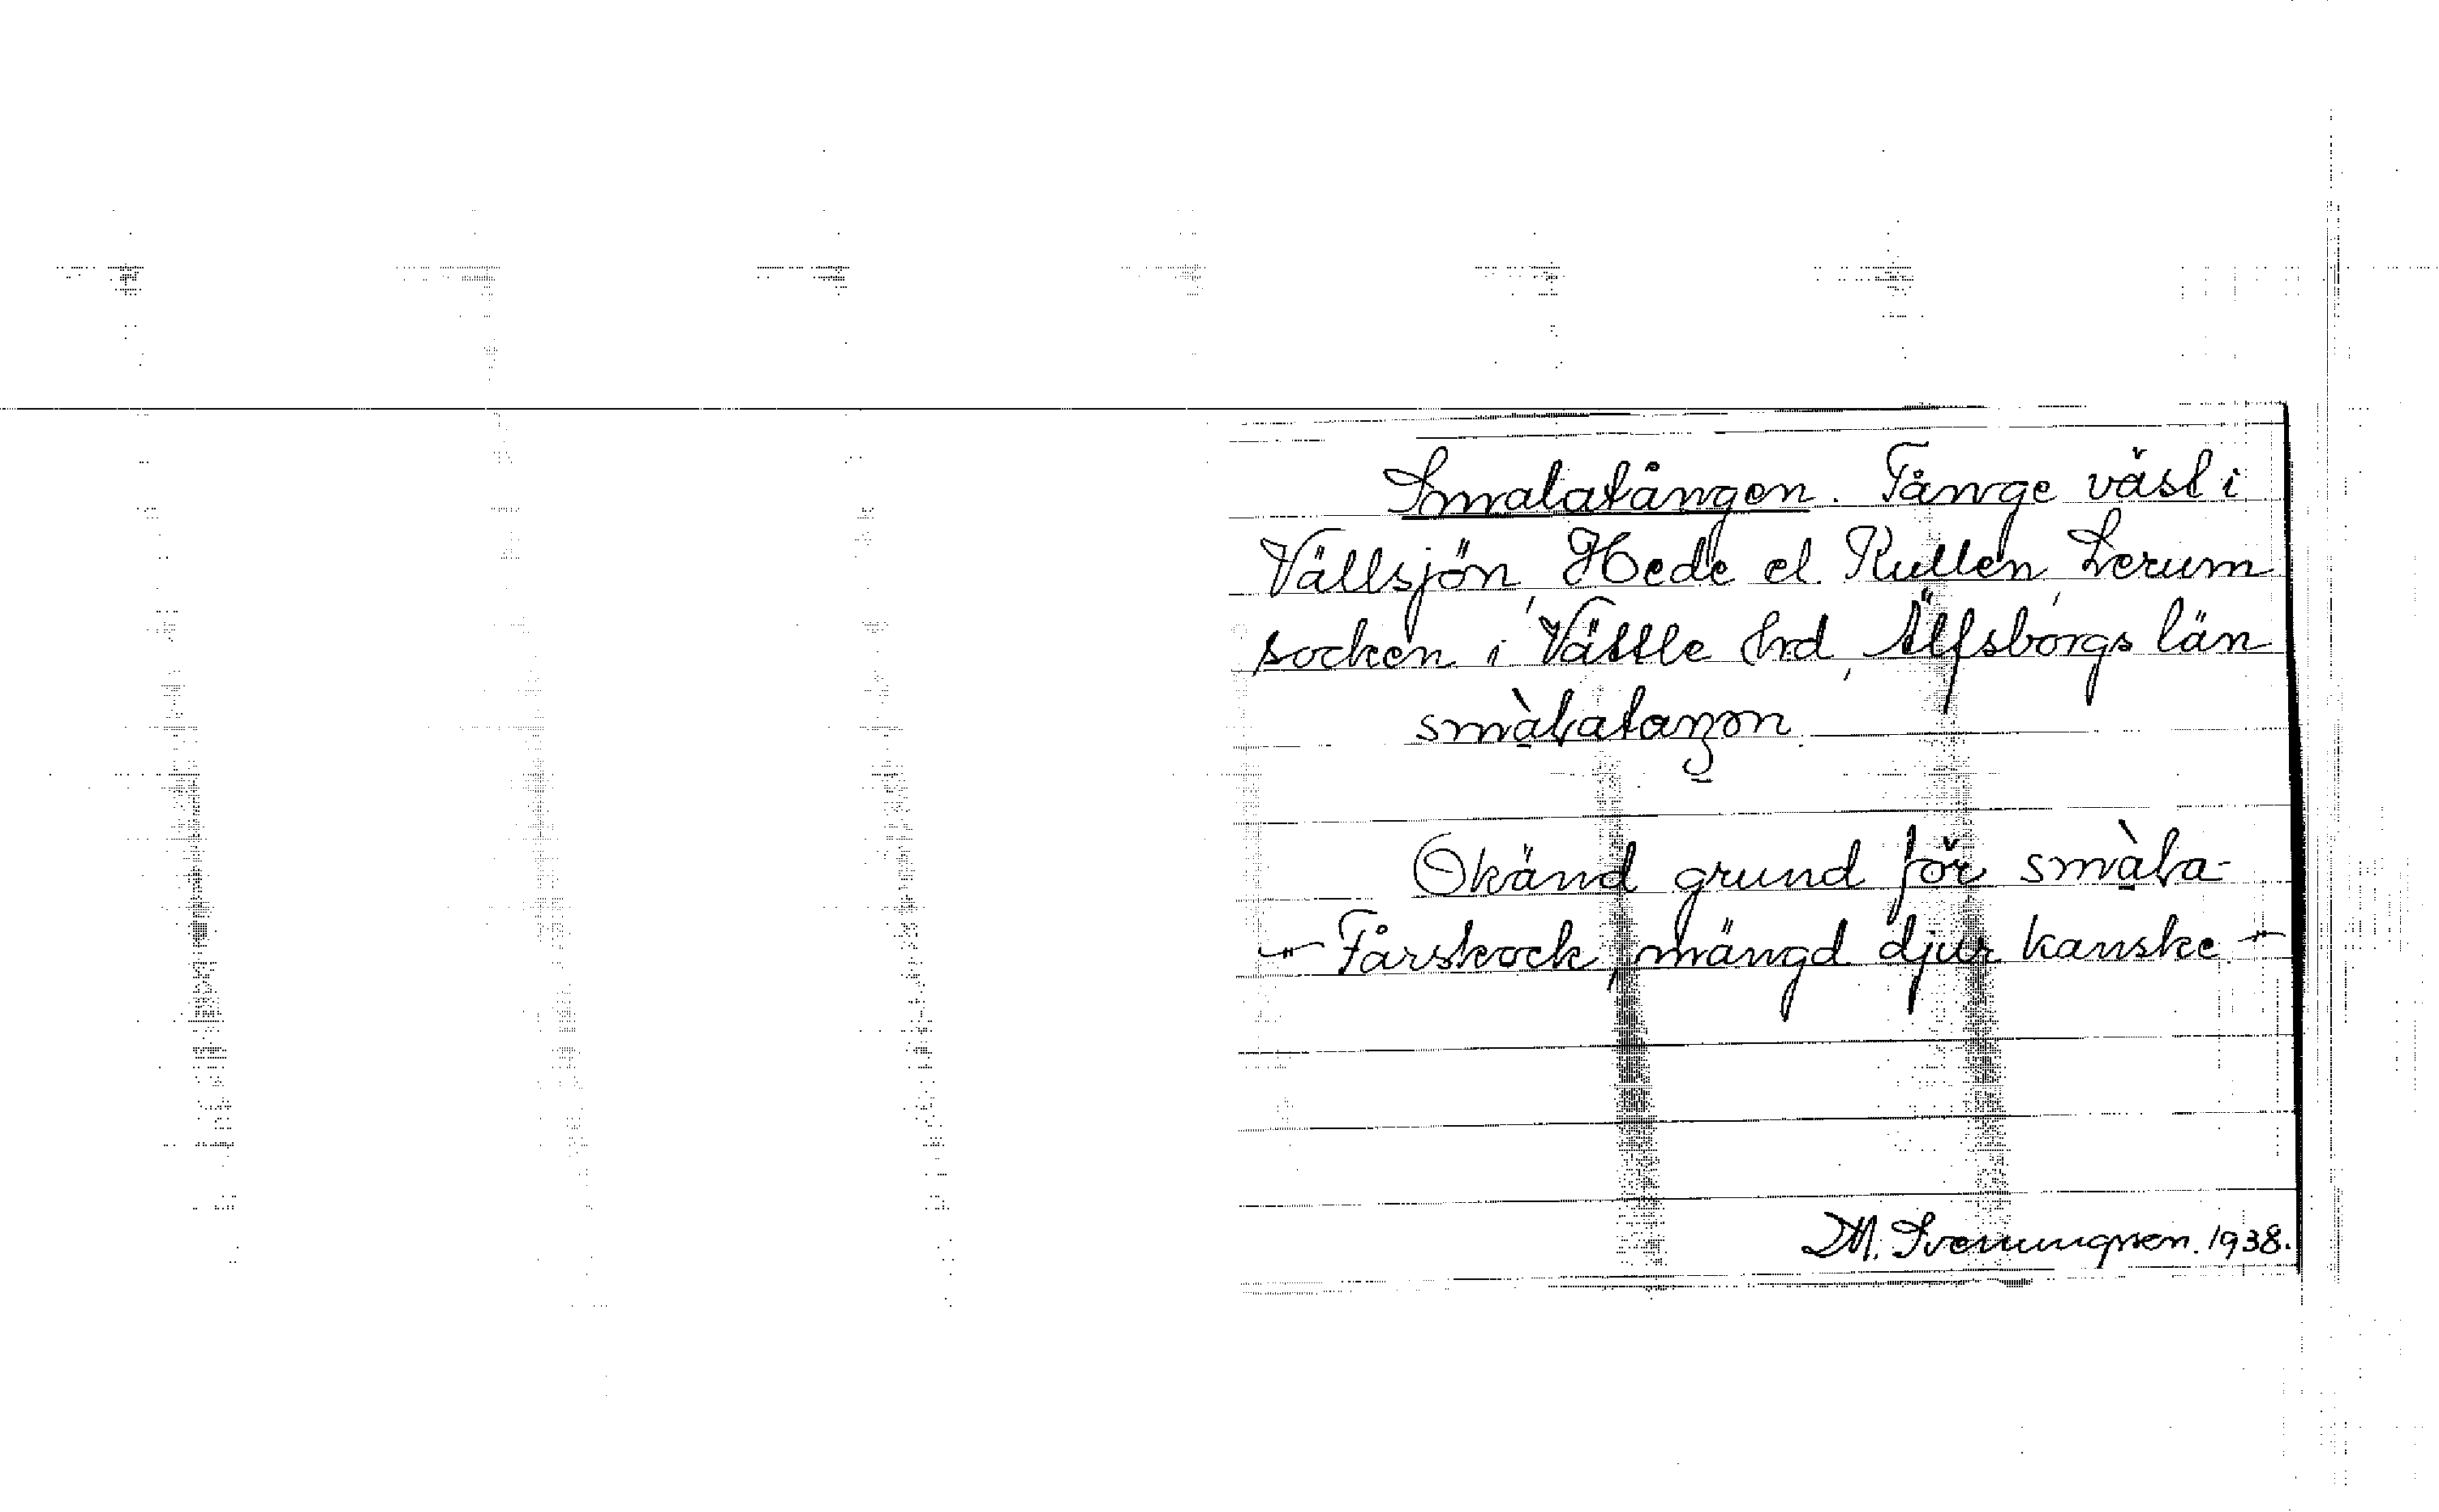 Smalatången. Tånge väst i
Vällsjön, Hede el. Kullen, Lerum
socken i Vättle hrd, Älfsborgs län
smàḷataŋən.
Okänd grund för smàḷa-
- Fårskock, mängd djur kanske. -
M. Svenungsson. 1938.